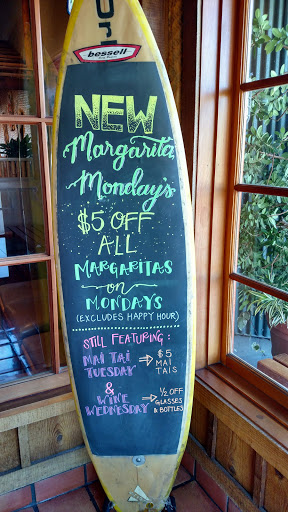 bessell
NEW
Margarita
Monday's
$5 OFF
ALL
MARGARITAS
on
MONDAYS
(EXCLUDES HAPPY HOUR)
STILL FEATURING:
MAI TAI → $5
TUESDAY MAI
TAIS
&
WINE → 1/2 OFF
WEDNESDAY GLASSES
& BOTTLES